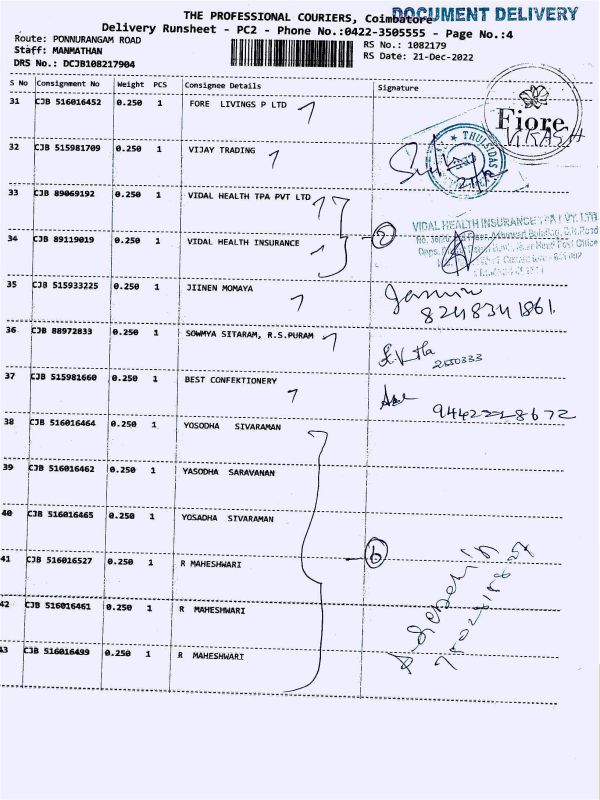 THE PROFESSIONAL COURIERS, Coimbatore
DOCUMENT DELIVERY
Delivery Runsheet - PC2 - Phone No.:0422-3505555 - Page No.:4
Route: PONNURANGAM ROAD
RS No.: 1082179
Staff: MANMATHAN
RS Date: 21-Dec-2022
DRS No.: DCJB108217904
S No Consignment No Weight PCS Consignee Details Signature
31 CJB 516016452 0.250 1 FORE LIVINGS P LTD 1
Fiore
32 CJB 515981709 0.250 1 VIJAY TRADING 1
THULSIDAS
33 CJB 89069192 0.250 1 VIDAL HEALTH TPA PVT LTD 1
VIDAL HEALTH INSURANCE TPA PVT. LTD
34 CJB 89119019 0.250 1 VIDAL HEALTH INSURANCE 1
2
35 CJB 515933225 0.250 1 JIINEN MOMAYA 1
8248341861.
36 CJB 88972833 0.250 1 SOWMYA SITARAM, R.S.PURAM 1
2550333
37 CJB 515981660 0.250 1 BEST CONFEKTIONERY 1
9442228672
38 CJB 516016464 0.250 1 YOSODHA SIVARAMAN
39 CJB 516016462 0.250 1 YASODHA SARAVANAN
40 CJB 516016465 0.250 1 YOSADHA SIVARAMAN
41 CJB 516016527 0.250 1 R MAHESHWARI
6
42 CJB 516016461 0.250 1 R MAHESHWARI
43 CJB 516016499 0.250 1 R MAHESHWARI